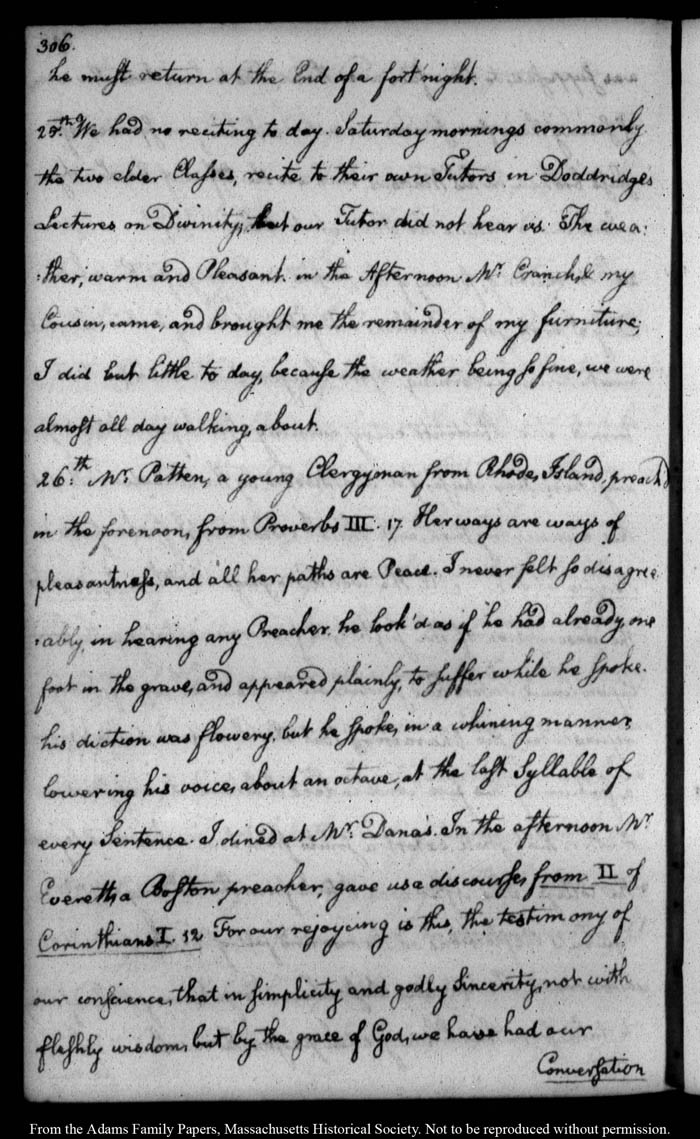 306.
he must return at the End of a fort'night.
25.th We had no reciting to day. Saturday mornings commonly
the two elder Classes, recite to their own Tutors in Doddridge's
Lectures on Divinity, but our Tutor did not hear us. The wea:
:ther, warm and Pleasant. in the Afternoon Mr. Cranch, & my
Cousin, came, and brought me the remainder of my furniture;
I did but little to day, because the weather being so fine, we were
almost all day walking, about.
26.th Mr. Patten, a young Clergyman from Rhode, Island, preach'd
in the forenoon, from Proverbs III. 17. Her ways are ways of
pleasantness, and all her paths are Peace. I never felt so disagree:
:ably, in hearing any Preacher. he look'd as if he had already one
foot in the grave, and appeared plainly, to suffer while he spoke.
his diction was flowery. but he spoke, in a whining manner,
lowering his voice, about an octave, at the last Syllable of
every Sentence. I dined at Mr. Dana's. In the afternoon Mr.
Everett, a Boston preacher, gave us a discourse, from II of
Corinthians I. 12 For our rejoycing is this, the testimony of
our conscience, that in simplicity and godly Sincerity, not with
fleshly wisdom, but by the grace of God, we have had our
Conversation
From the Adams Family Papers, Massachusetts Historical Society. Not to be reproduced without permission.